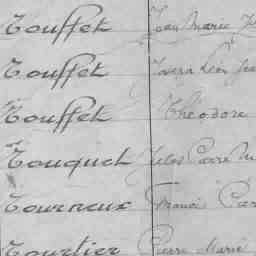 Touffet Jean Marie
Touffet Joseph Léon
Touffet Théodore
Touquet Jules Pierre
Tourneux
Tourtier Pierre Marie